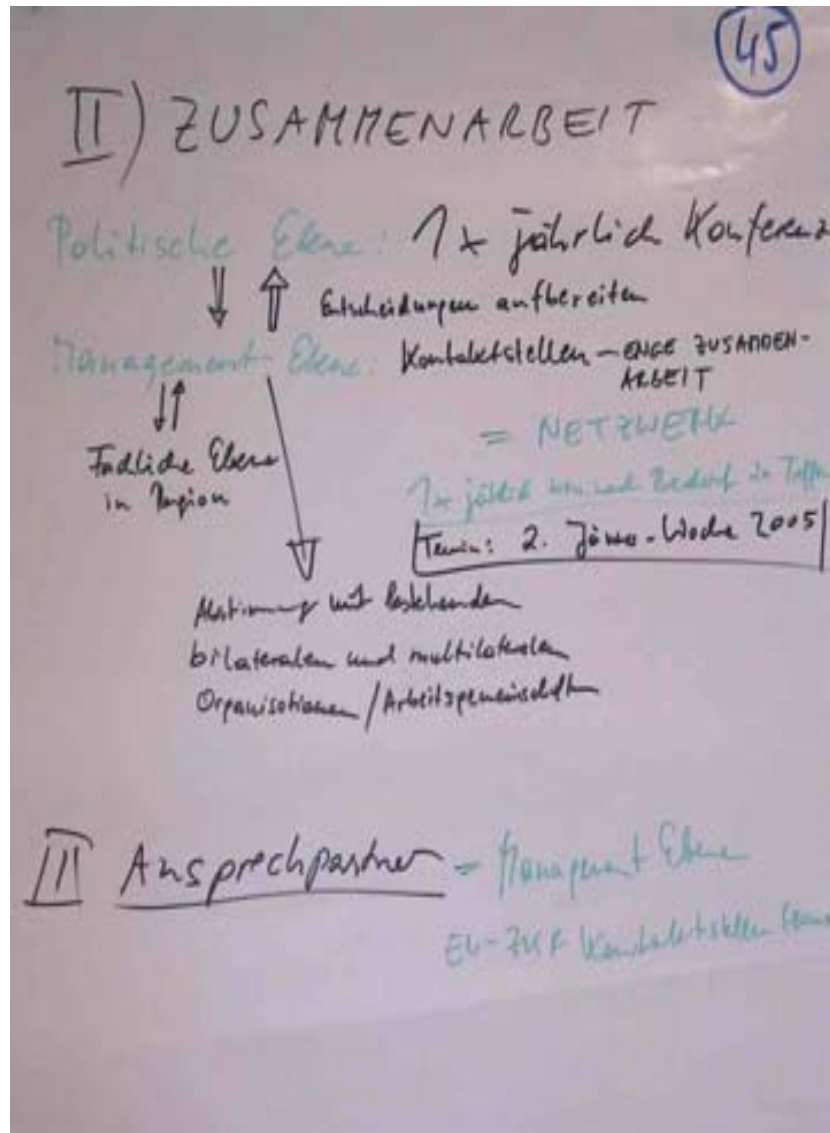 45
II) ZUSAMMENARBEIT
Politische Ebene: 1x jährlich Konferenz
Entscheidungen aufbereiten
Management-Ebene: Kontaktstellen – ENGE ZUSAMMEN-
ARBEIT
= NETZWERK
Fachliche Ebene
in Region
1x jährlich nach Bedarf
Termin: 2. Jänner-Woche 2005
Abstimmung mit bestehenden
bilateralen und multilateralen
Organisationen / Arbeitsgemeinschaften
III Ansprechpartner = Management Ebene
EU- Kontaktstellen